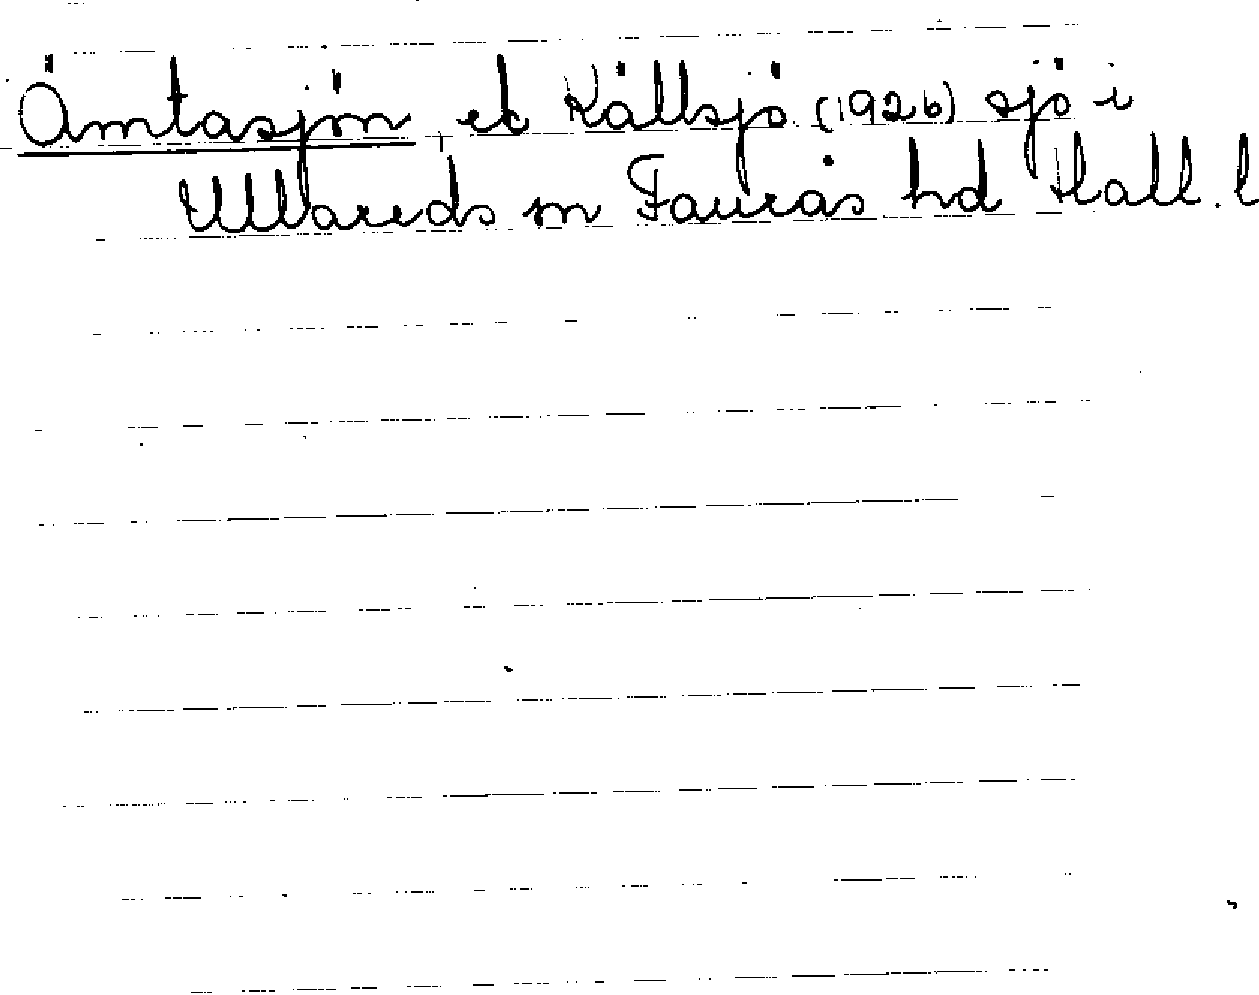 Ämtasjön, et Källsjö (1926) sjö i
Ullareds sn Faurås hd Hall. l